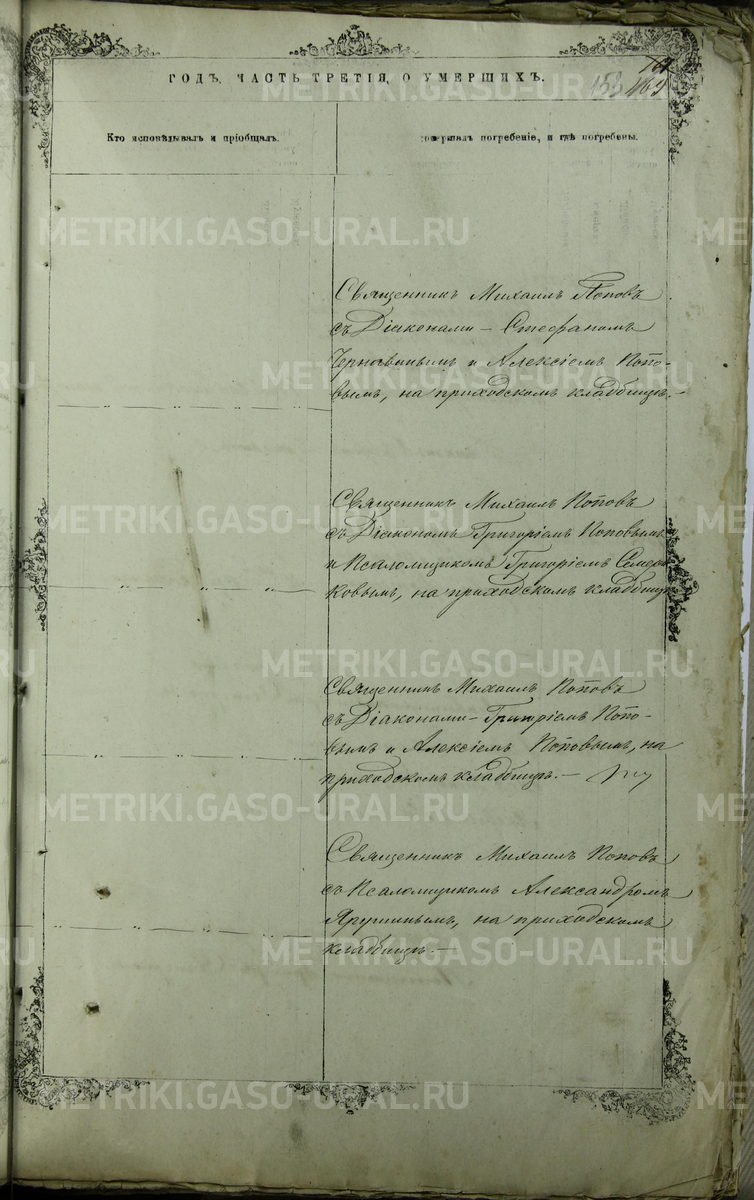 ГОДЪ, ЧАСТЬ ТРЕТІЯ, О УМЕРШИХЪ.
Кто исповѣдывалъ и пріобщалъ.
совершалъ погребеніе, и гдѣ погребены.
Священникъ Михаилъ Поповъ
съ Діаконами – Стефаномъ
Чернавинымъ и Алексіемъ Попо-
вымъ, на приходскомъ кладбищѣ. –
Священникъ Михаилъ Поповъ
съ Діакономъ Григоріемъ Поповымъ
и Псаломщикомъ Григоріемъ
ковымъ, на приходскомъ кладбищѣ
Священникъ Михаилъ Поповъ
съ Діаконами – Григоріемъ Попо-
вымъ и Алексіемъ Поповымъ, на
приходскомъ кладбищѣ. –
Священникъ Михаилъ Поповъ
съ Псаломщикомъ Александромъ
Ярушинымъ, на приходскомъ
кладбищѣ. –
METRIKI.GASO-URAL.RU